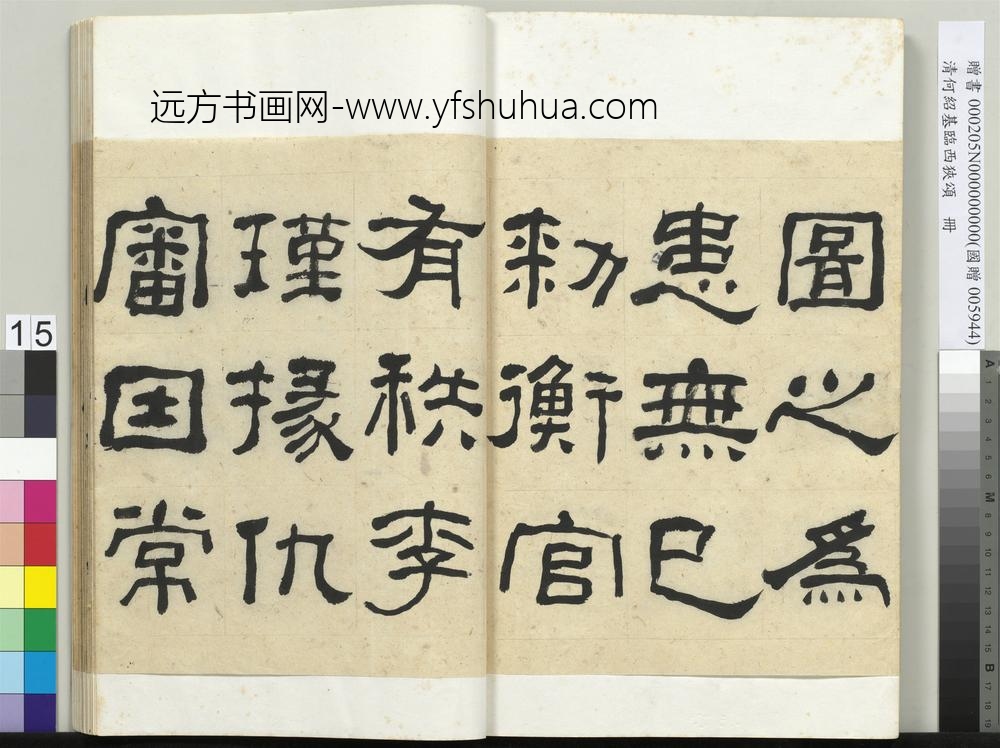 远方书画网-www.yfshuhua.com
圖之為
患無已
勑衡官
有秩李
瑾掾仇
審因常
贈書 000205N000000000(國贈 005944)
清何紹基臨西狹頌 冊
15
A 1 2 3 4 5 6 M 8 9 10 11 12 13 14 15 B 17 18 19